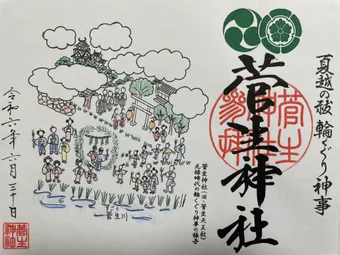 夏越の祓 輪ぐり神事
菅生神社
菅生神社(旧・菅生天王社)
元禄時代の輪くぐり神事の様子
菅生川
令和六年六月三十日
菅生
神社